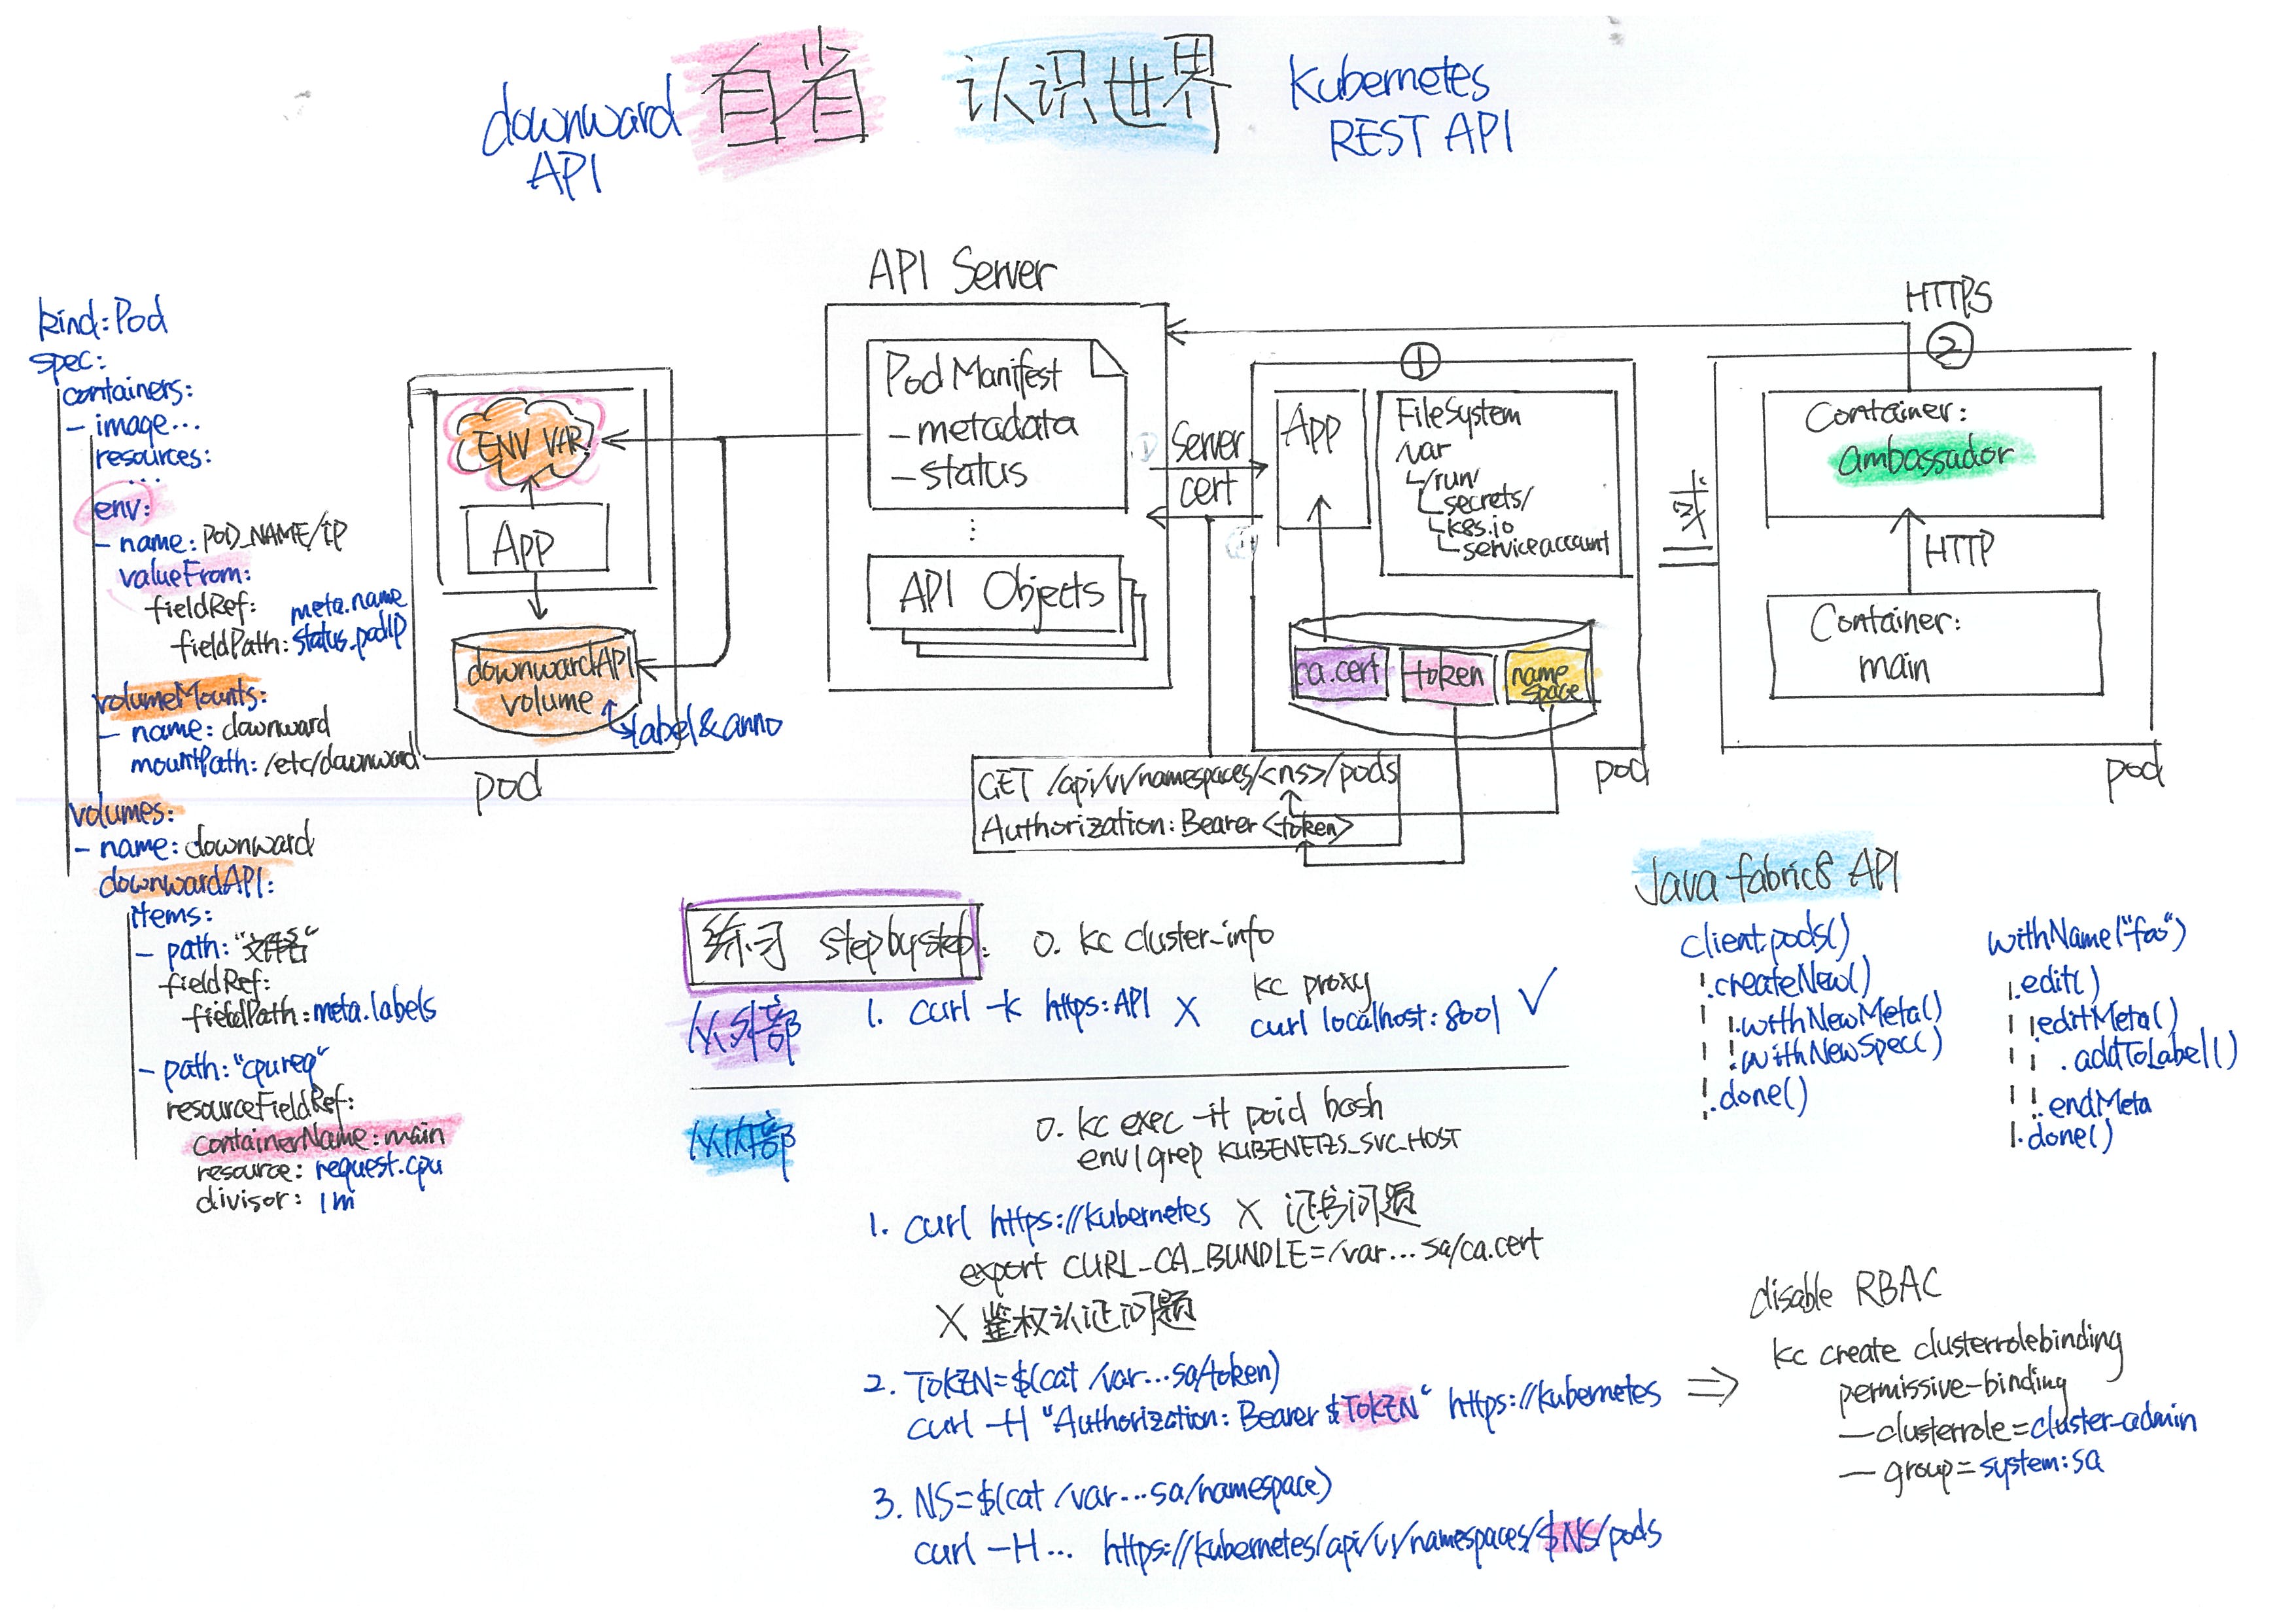 downward
API
自省
认识世界
Kubernetes
REST API
kind: Pod
spec:
containers:
- image...
resources:
...
env:
- name: POD_NAME/IP
valueFrom:
fieldRef:
fieldPath: meta.name
status.podIP
volumeMounts:
- name: downward
mountPath: /etc/downward
volumes:
- name: downward
downwardAPI:
items:
- path: "文件名"
fieldRef:
fieldPath: meta.labels
- path: "cpureq"
resourceFieldRef:
containerName: main
resource: request.cpu
divisor: 1m
ENV VAR
App
downwardAPI
volume
label&anno
pod
API Server
Pod Manifest
- metadata
- status
⋮
API Objects
Server
cert
①
App
FileSystem
/var
/run/
secrets/
k8s.io
serviceaccount
ca.cert
token
name
space
pod
GET /api/v1/namespaces/<ns>/pods
Authorization: Bearer <token>
或
HTTPS
②
Container:
ambassador
HTTP
Container:
main
pod
练习 step by step:
0. kc cluster-info
从外部
1. curl -k https:API X
kc proxy
curl localhost:8001 ✓
从内部
0. kc exec -it poid bash
env|grep KUBENETES_SVC_HOST
1. curl https://kubernetes X 证书问题
export CURL_CA_BUNDLE=/var...sa/ca.cert
X 鉴权认证问题
2. TOKEN=$(cat /var...sa/token)
curl -H "Authorization: Bearer $TOKEN" https://kubernetes ⇒
3. NS=$(cat /var...sa/namespace)
curl -H... https://kubernetes/api/v1/namespaces/$NS/pods
Java fabric8 API
client.pods()
.createNew()
.withNewMeta()
.withNewSpec()
.done()
withName("foo")
.edit()
.editMeta()
.addToLabel()
.endMeta
.done()
disable RBAC
kc create clusterrolebinding
permissive-binding
--clusterrole=cluster-admin
--group=system:sa